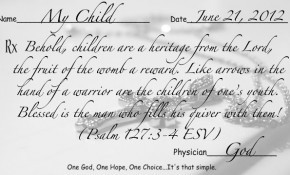 Name My Child Date June 21, 2012
Rx Behold, children are a heritage from the Lord,
the fruit of the womb a reward. Like arrows in the
hand of a warrior are the children of one's youth.
Blessed is the man who fills his quiver with them!
(Psalm 127:3-4 ESV)
Physician God
One God, One Hope, One Choice...It's that simple.